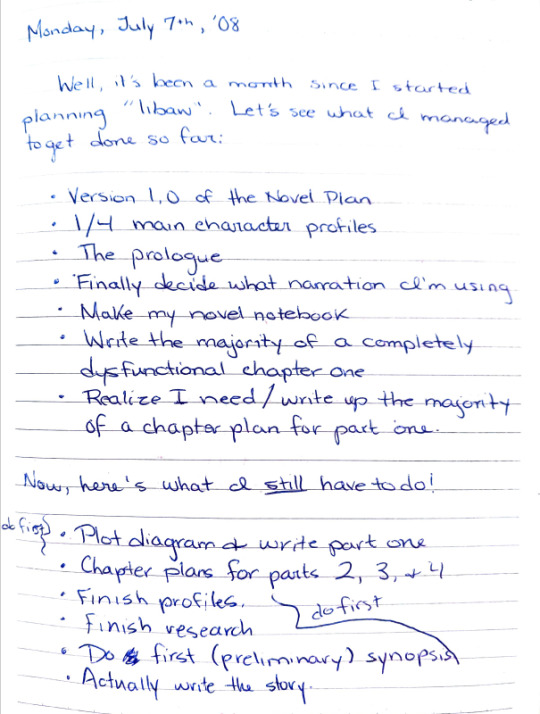 Monday, July 7th, '08
Well, it's been a month since I started
planning "libaw". Let's see what I managed
to get done so far:
• Version 1.0 of the Novel Plan
• 1/4 main character profiles
• The prologue
• Finally decide what narration I'm using
• Make my novel notebook
• Write the majority of a completely
dysfunctional chapter one
• Realize I need/write up the majority
of a chapter plan for part one.
Now, here's what I still have to do!
• Plot diagram & write part one
• Chapter plans for parts 2, 3, + 4
• Finish profiles.
do first
• Finish research
• Do first (preliminary) synopsis
• Actually write the story.